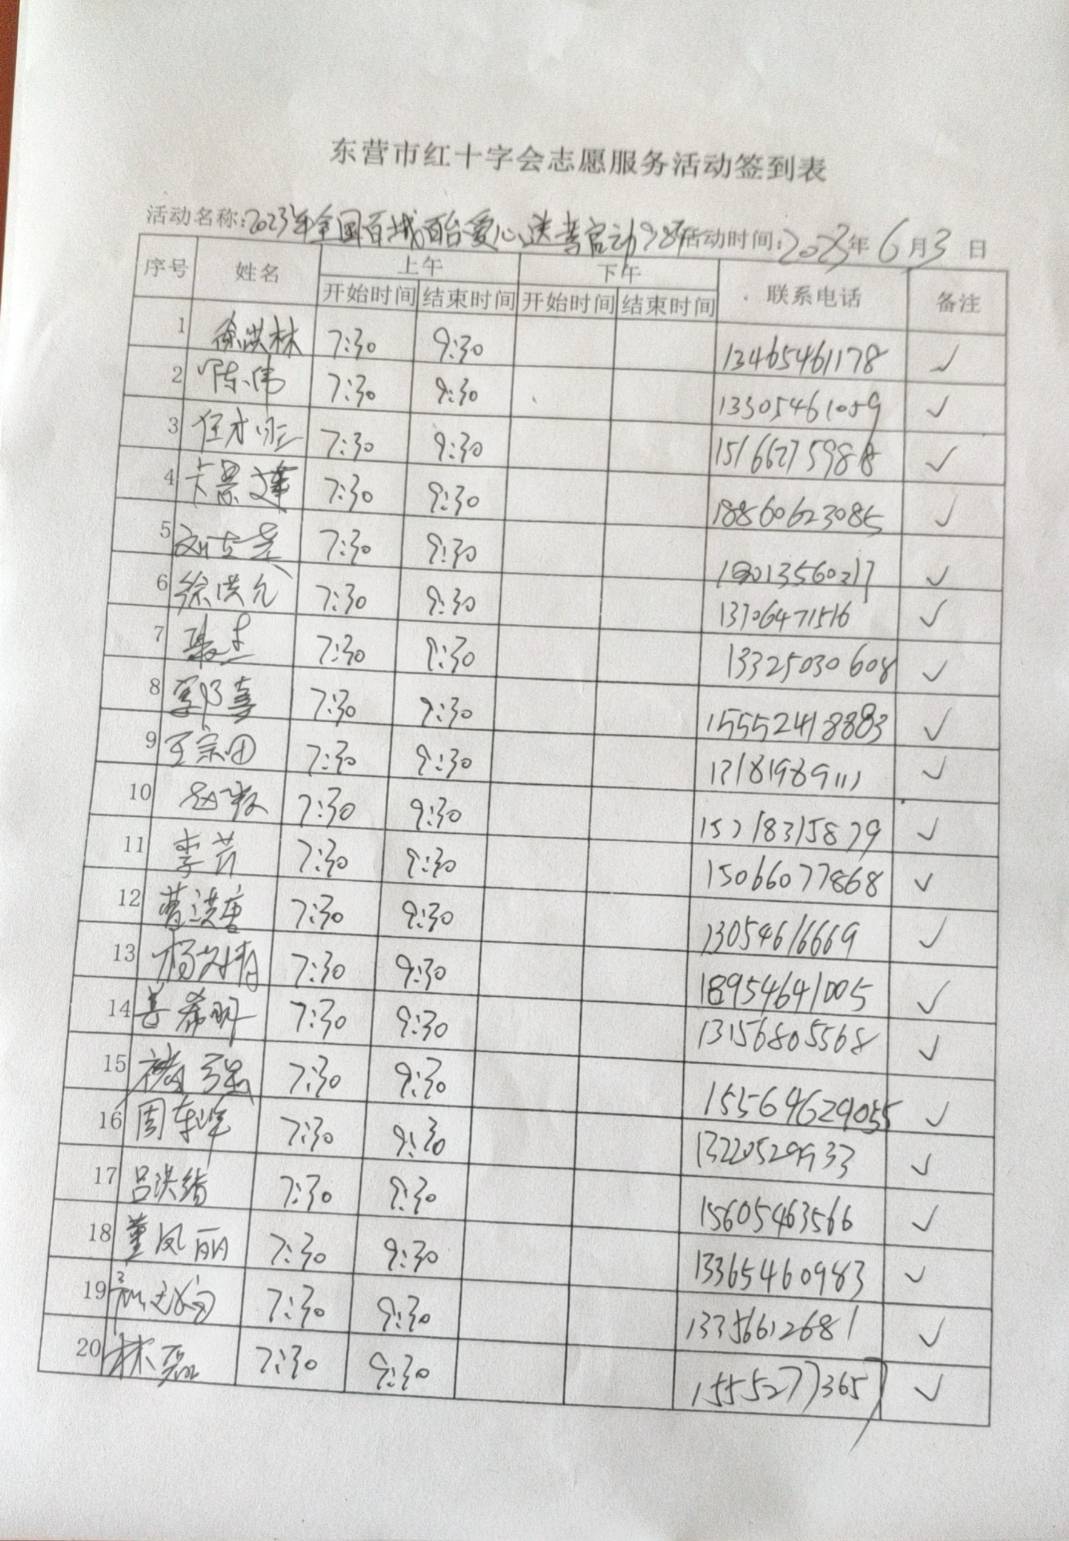 东营市红十字会志愿服务活动签到表
活动名称:2023年全国百城百台爱心送考启动 活动时间:2023年6月3日
序号 姓名 上午 下午 联系电话 备注
开始时间 结束时间 开始时间 结束时间
1 徐洪林 7:30 9:30 13465461178 ✓
2 陈伟 7:30 9:30 13305461059 ✓
3 任才 7:30 9:30 15166275988 ✓
4 卞景莲 7:30 9:30 18860623085 ✓
5 7:30 9:30 ✓
6 徐洪允 7:30 9:30 13706471516 ✓
7 7:30 9:30 13325030608 ✓
8 7:30 9:30 15552418883 ✓
9 王宗田 7:30 9:30 ✓
10 赵敏 7:30 9:30 ✓
11 李芳 7:30 9:30 15066077868 ✓
12 曹洪 7:30 9:30 13054616669 ✓
13 杨文娟 7:30 9:30 18954641005 ✓
14 希明 7:30 9:30 13156805568 ✓
15 7:30 9:30 15564629055 ✓
16 周东峰 7:30 9:30 13220529933 ✓
17 吕洪绪 7:30 9:30 15605463566 ✓
18 董凤丽 7:30 9:30 13365460983 ✓
19 7:30 9:30 13356612681 ✓
20 林磊 7:30 9:30 15552773657 ✓